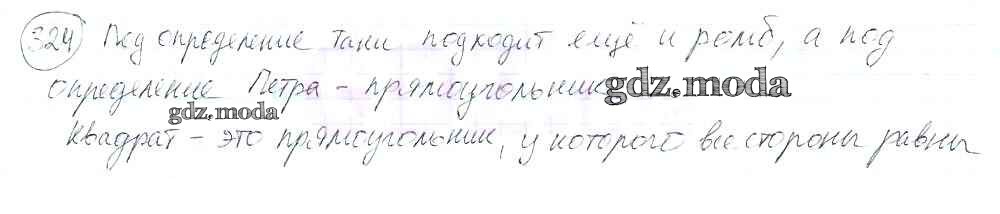 324 Под определение Тани подходит ещё и ромб, а под
определение Петра - прямоугольник gdz.moda
gdz.moda
Квадрат - это прямоугольник, у которого все стороны равны